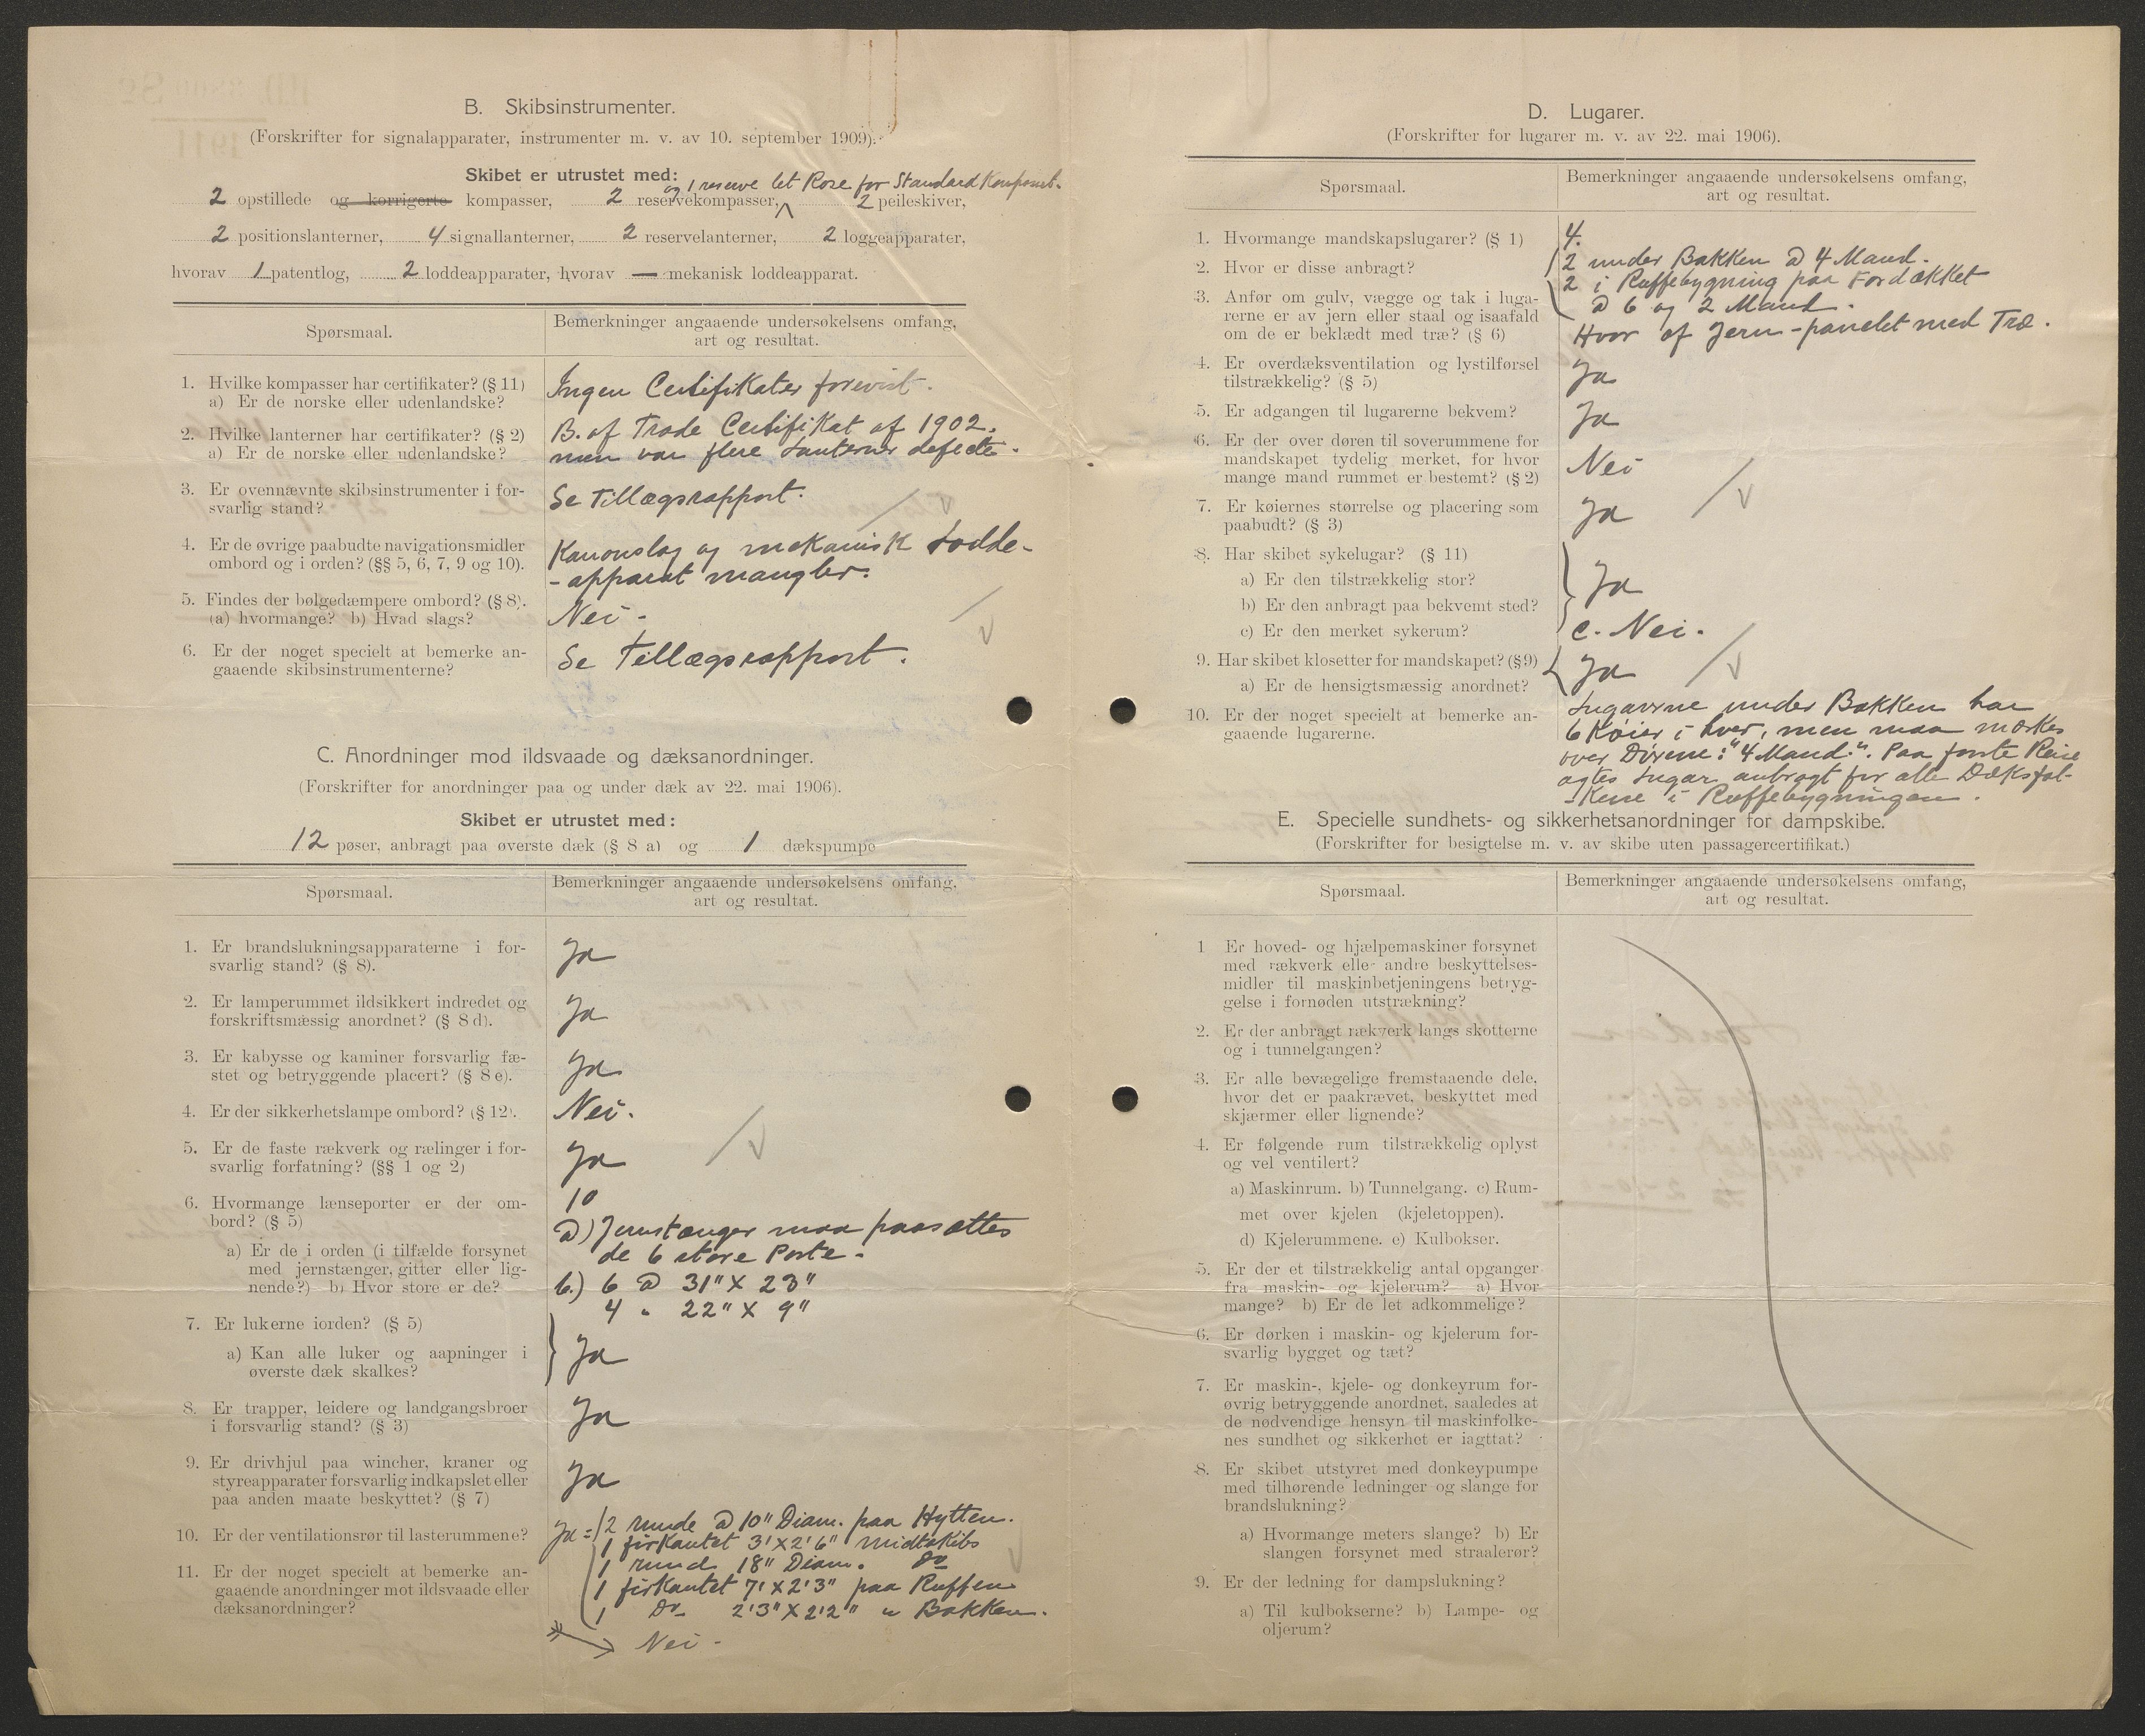 B. Skibsinstrumenter.
(Forskrifter for signalapparater, instrumenter m. v. av 10. september 1909).
Skibet er utrustet med:
og 1 reserve let Rose for Standard Kompasset.
2 opstillede og korrigerte kompasser, 2 reservekompasser, 2 peileskiver,
2 positionslanterner, 4 signallanterner, 2 reservelanterner, 2 loggeapparater,
hvorav 1 patentlog, 2 loddeapparater, hvorav — mekanisk loddeapparat.
Spørsmaal.
Bemerkninger angaaende undersøkelsens omfang,
art og resultat.
1. Hvilke kompasser har certifikater? (§ 11)
a) Er de norske eller udenlandske?
Ingen Certifikater forevist.
2. Hvilke lanterner har certifikater? (§ 2)
a) Er de norske eller udenlandske?
B. of Trade Certifikat af 1902.
men var flere Lanterner defecte.
3. Er ovennævnte skibsinstrumenter i for-
svarlig stand?
Se Tillægsrapport.
4. Er de øvrige paabudte navigationsmidler
ombord og i orden? (§§ 5, 6, 7, 9 og 10).
Kanonslag og mekanisk Lodde-
-apparat mangler.
5. Findes der bølgedæmpere ombord? (§ 8).
(a) hvormange? b) Hvad slags?
Nei -
6. Er der noget specielt at bemerke an-
gaaende skibsinstrumenterne?
Se Tillægsrapport.
C. Anordninger mod ildsvaade og dæksanordninger.
(Forskrifter for anordninger paa og under dæk av 22. mai 1906).
Skibet er utrustet med:
12 pøser, anbragt paa øverste dæk (§ 8 a) og 1 dækspumpe
Spørsmaal.
Bemerkninger angaaende undersøkelsens omfang,
art og resultat.
1. Er brandslukningsapparaterne i for-
svarlig stand? (§ 8).
Ja
2. Er lamperummet ildsikkert indredet og
forskriftsmæssig anordnet? (§ 8 d).
Ja
3. Er kabysse og kaminer forsvarlig fæ-
stet og betryggende placert? (§ 8 e).
Ja
4. Er der sikkerhetslampe ombord? (§ 12).
Nei.
5. Er de faste rækverk og rælinger i for-
svarlig forfatning? (§§ 1 og 2)
Ja
6. Hvormange lænseporter er der om-
bord? (§ 5)
10
a) Er de i orden (i tilfælde forsynet
med jernstænger, gitter eller lig-
nende?) b) Hvor store er de?
a) Jernstænger maa paasættes
de 6 store Porte.
b.) 6 a 31" X 23"
4 " 22" X 9"
7. Er lukerne iorden? (§ 5)
a) Kan alle luker og aapninger i
øverste dæk skalkes?
Ja
8. Er trapper, leidere og landgangsbroer
i forsvarlig stand? (§ 3)
Ja
9. Er drivhjul paa wincher, kraner og
styreapparater forsvarlig indkapslet eller
paa anden maate beskyttet? (§ 7)
Ja
10. Er der ventilationsrør til lasterummene?
Ja = 2 runde a 10" Diam. paa Hytten.
1 firkantet 3' X 2'6" midtskibs
1 rund 18" Diam. Do
1 firkantet 7' X 2'3" paa Ruffen
1 Do 2'3" X 2'2" " Bakken.
11. Er der noget specielt at bemerke an-
gaaende anordninger mot ildsvaade eller
dæksanordninger?
Nei -
D. Lugarer.
(Forskrifter for lugarer m. v. av 22. mai 1906).
Spørsmaal.
Bemerkninger angaaende undersøkelsens omfang,
art og resultat.
1. Hvormange mandskapslugarer? (§ 1)
4.
2. Hvor er disse anbragt?
2 under Bakken a 4 Mand.
2 i Ruffebygning paa Fordækket
a 6 og 2 Mand.
3. Anfør om gulv, vægge og tak i luga-
rerne er av jern eller staal og isaafald
om de er beklædt med træ? (§ 6)
Hvor af Jern - panelet med Træ.
4. Er overdæksventilation og lystilførsel
tilstrækkelig? (§ 5)
Ja
5. Er adgangen til lugarerne bekvem?
Ja
6. Er der over døren til soverummene for
mandskapet tydelig merket, for hvor
mange mand rummet er bestemt? (§ 2)
Nei
7. Er køiernes størrelse og placering som
paabudt? (§ 3)
Ja
8. Har skibet sykelugar? (§ 11)
a) Er den tilstrækkelig stor?
b) Er den anbragt paa bekvemt sted?
Ja
c) Er den merket sykerum?
c. Nei.
9. Har skibet klosetter for mandskapet? (§ 9)
a) Er de hensigtsmæssig anordnet?
Ja
10. Er der noget specielt at bemerke an-
gaaende lugarerne.
Lugarerne under Bakken har
6 Køier i hver, men maa mærkes
over Dørene: "4 Mand". Paa første Reise
agtes Lugar anbragt for alle Dæksfol-
-kene i Ruffebygningen.
E. Specielle sundhets- og sikkerhetsanordninger for dampskibe.
(Forskrifter for besigtelse m. v. av skibe uten passagercertifikat.)
Spørsmaal.
Bemerkninger angaaende undersøkelsens omfang,
art og resultat.
1 Er hoved- og hjælpemaskiner forsynet
med rækverk eller andre beskyttelses-
midler til maskinbetjeningens betryg-
gelse i fornøden utstrækning?
2. Er der anbragt rækverk langs skotterne
og i tunnelgangen?
3. Er alle bevægelige fremstaaende dele,
hvor det er paakrævet, beskyttet med
skjærmer eller lignende?
4. Er følgende rum tilstrækkelig oplyst
og vel ventilert?
a) Maskinrum. b) Tunnelgang. c) Rum-
met over kjelen (kjeletoppen).
d) Kjelerummene. e) Kulbokser.
5. Er der et tilstrækkelig antal opganger
fra maskin- og kjelerum? a) Hvor
mange? b) Er de let adkommelige?
6. Er dørken i maskin- og kjelerum for-
svarlig bygget og tæt?
7. Er maskin-, kjele- og donkeyrum for-
øvrig betryggende anordnet, saaledes at
de nødvendige hensyn til maskinfolke-
nes sundhet og sikkerhet er iagttat?
8. Er skibet utstyret med donkeypumpe
med tilhørende ledninger og slange for
brandslukning?
a) Hvormange meters slange? b) Er
slangen forsynet med straalerør?
9. Er der ledning for dampslukning?
a) Til kulbokserne? b) Lampe- og
oljerum?